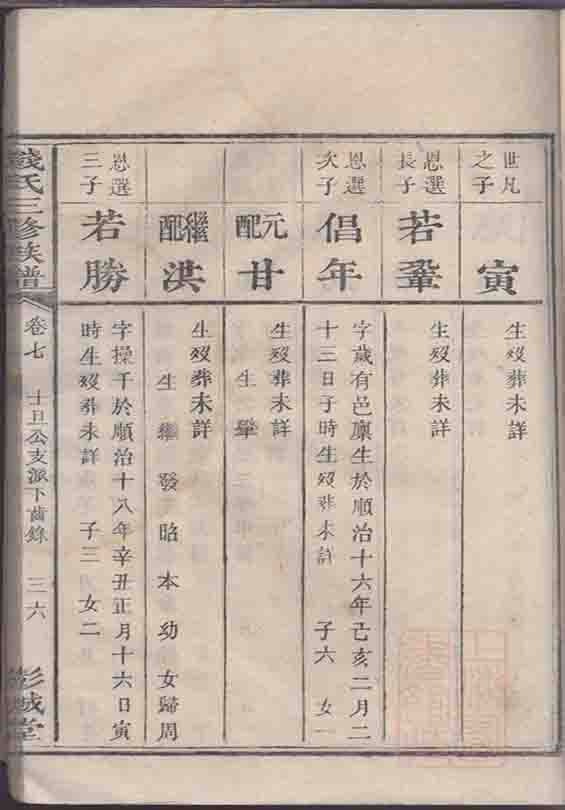 世凡之子
寅
生歿葬未詳
恩選長子
若鞏
生歿葬未詳
恩選次子
倡年
字歲有邑廩生於順治十六年己亥二月二
十三日子時生歿葬未詳 子六 女一
元配
甘
生歿葬未詳
生
繼配
洪
生歿葬未詳
生 發 昭 本 幼女歸周
恩選三子
若勝
字操千於順治十八年辛丑正月十六日寅
時生歿葬未詳 子三 女二
錢氏三修族譜
卷七
公支派下齒錄
三六
彭城堂